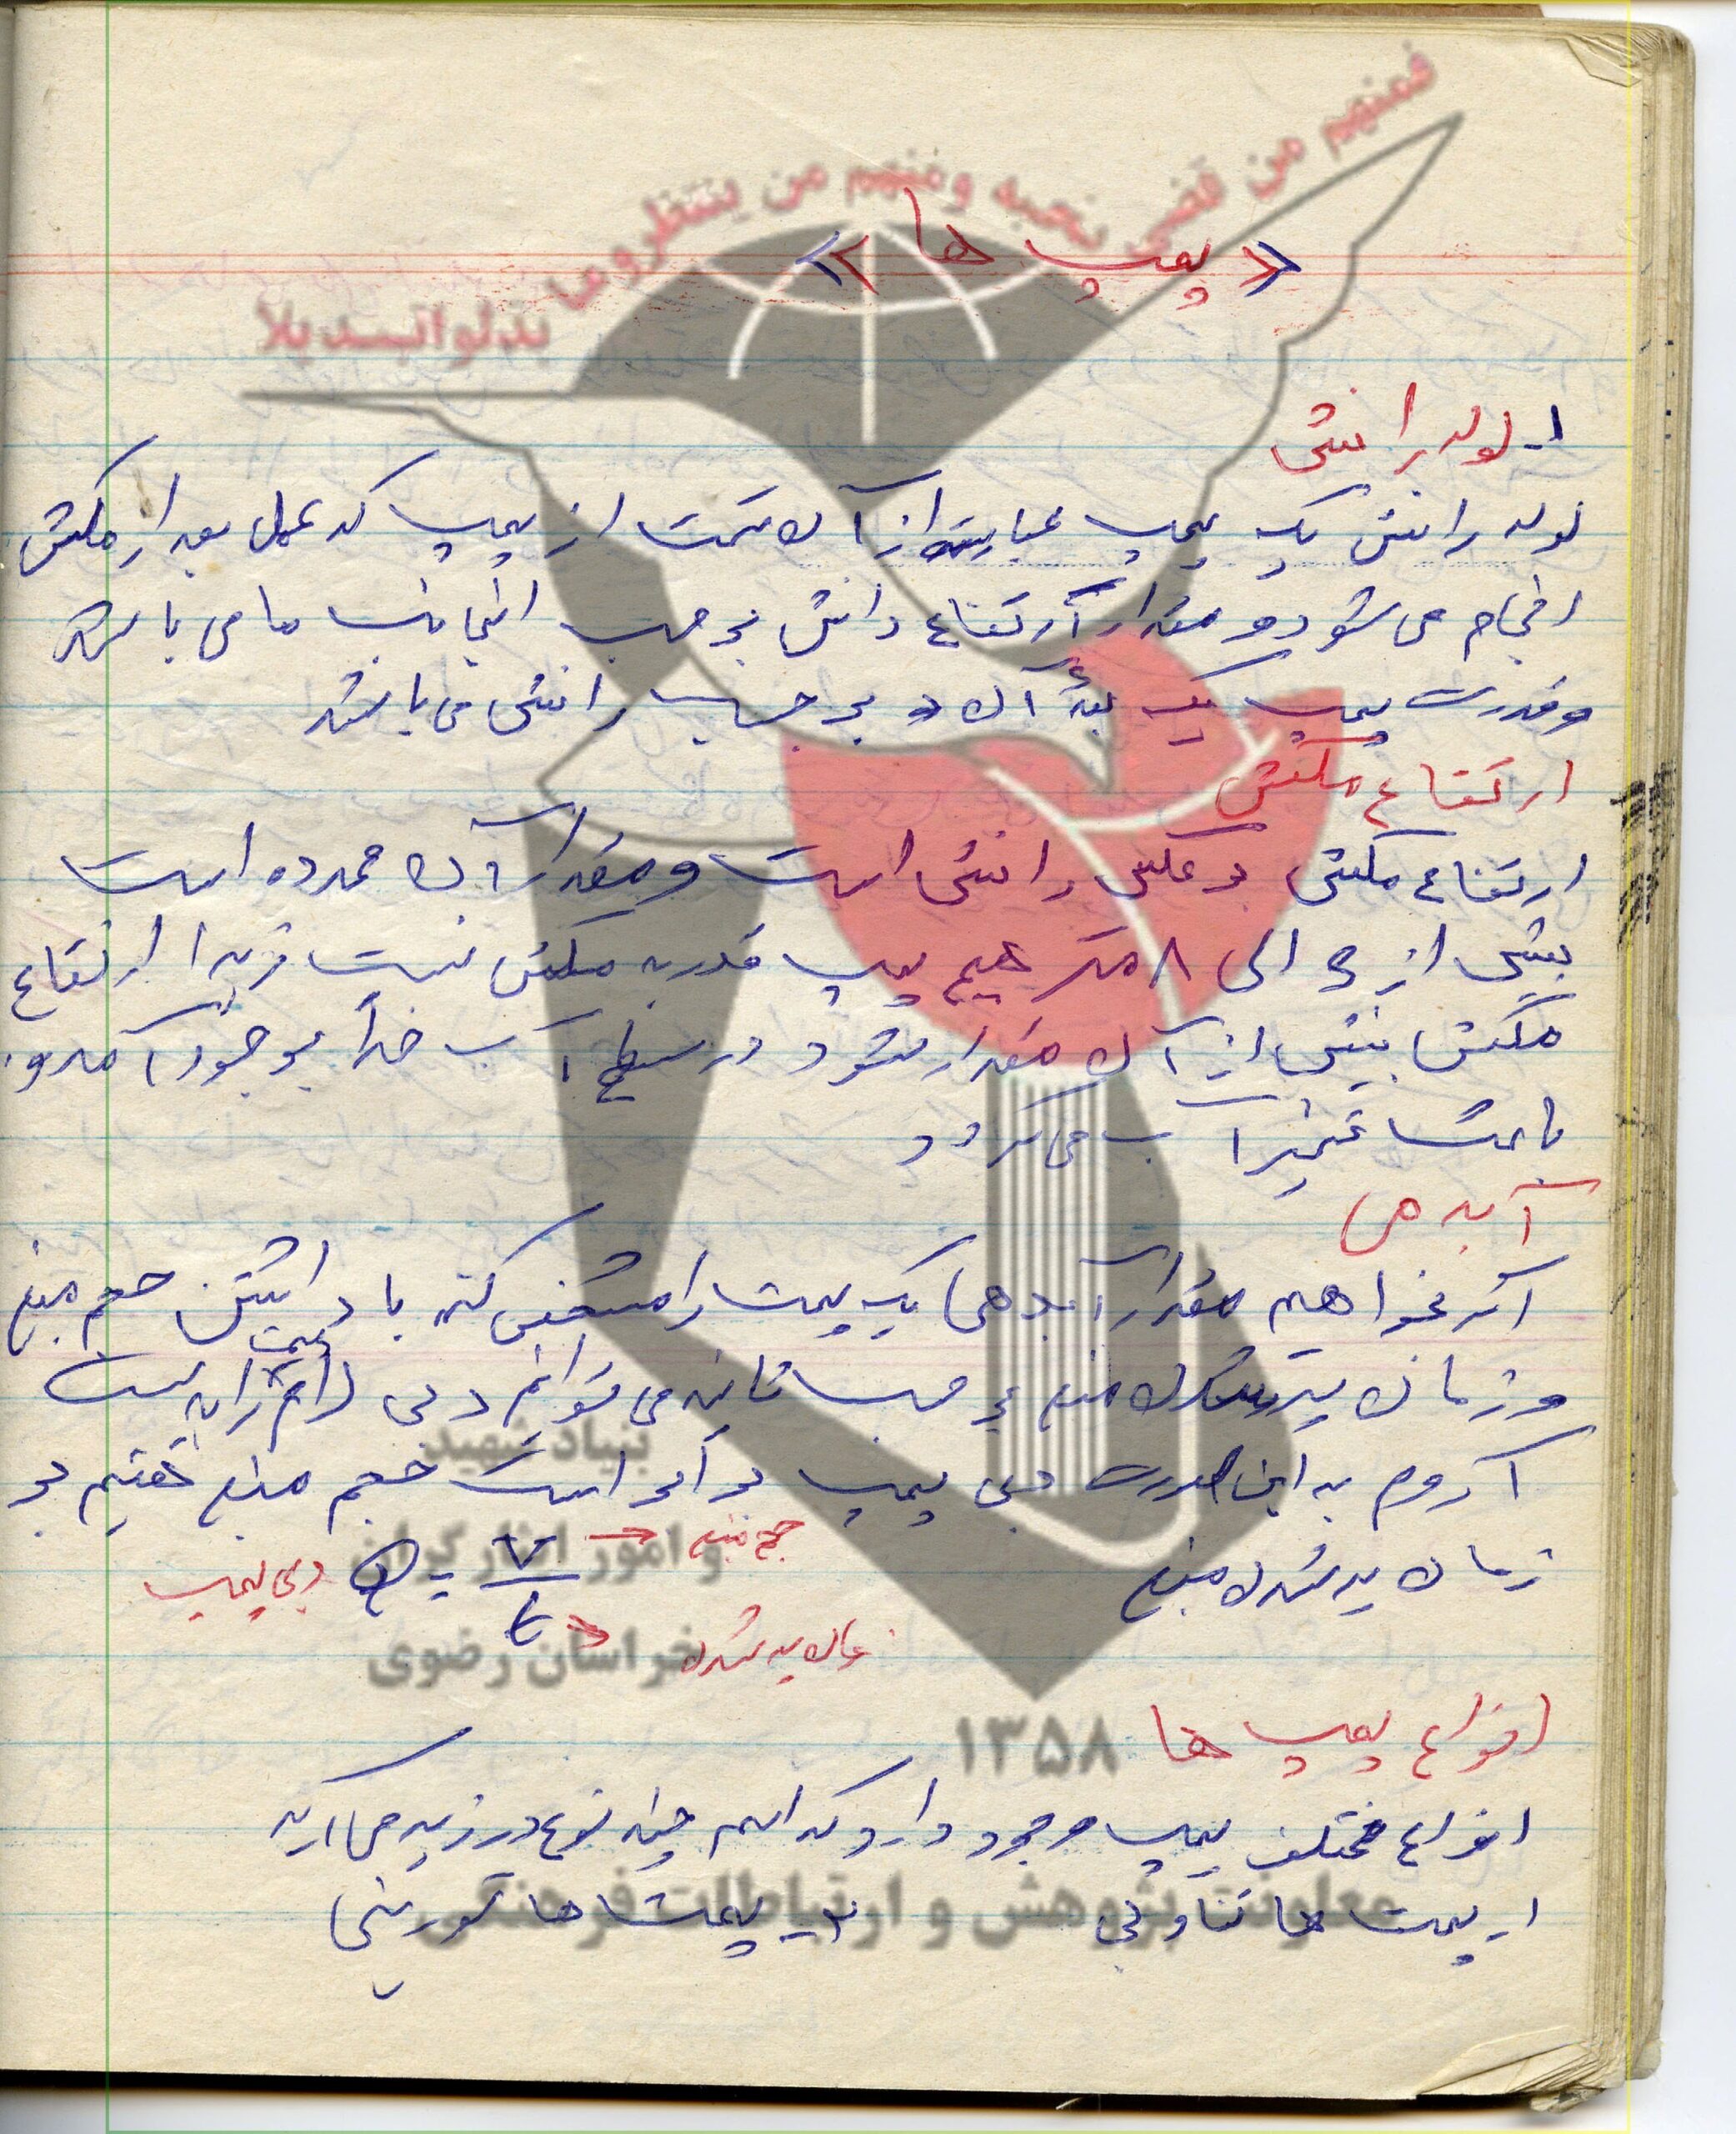 فمنهم من قضی نحبه ومنهم من ینتظر وما بدلوا تبدیلا
« پمپ ها »
۱- لوله رانش
لوله رانش یک پمپ عبارتست از آن قسمت از پمپ که عمل بعد از مکش
انجام می شود و مقدار ارتفاع رانش بر حسب می باشد
و قدرت پمپ یک آن بر حسب رانش می باشد
ارتفاع مکش
ارتفاع مکش بر عکس رانش است و مقدار آن محدود است
بیش از الی ۸ متر هیچ پمپ قادر به مکش نیست زیرا ارتفاع
مکش بیش از آن مقدار شود در سطح آب خلأ بوجود آمد و
باعث تبخیر آب می گردد
آبدهی
اگر بخواهیم مقدار آبدهی یک پمپ را مشخص کنیم با داشتن حجم منبع
و زمان پر شدن منبع بر حسب ثانیه می توانیم دبی پمپ را بدست
آوریم به این صورت دبی پمپ برابر است حجم منبع تقسیم بر
زمان پر شدن منبع
حجم منبع → V
دبی پمپ Q = —
زمان پر شدن → t
انواع پمپ ها
انواع مختلف پمپ وجود دارد که اسم چند نوع در زیر می آرید
۱- پمپ ها تناوبی ۲- پمپ ها توربینی
بنیاد شهید
و امور ایثارگران
خراسان رضوی
۱۳۵۸
معاونت پژوهش و ارتباطات فرهنگی